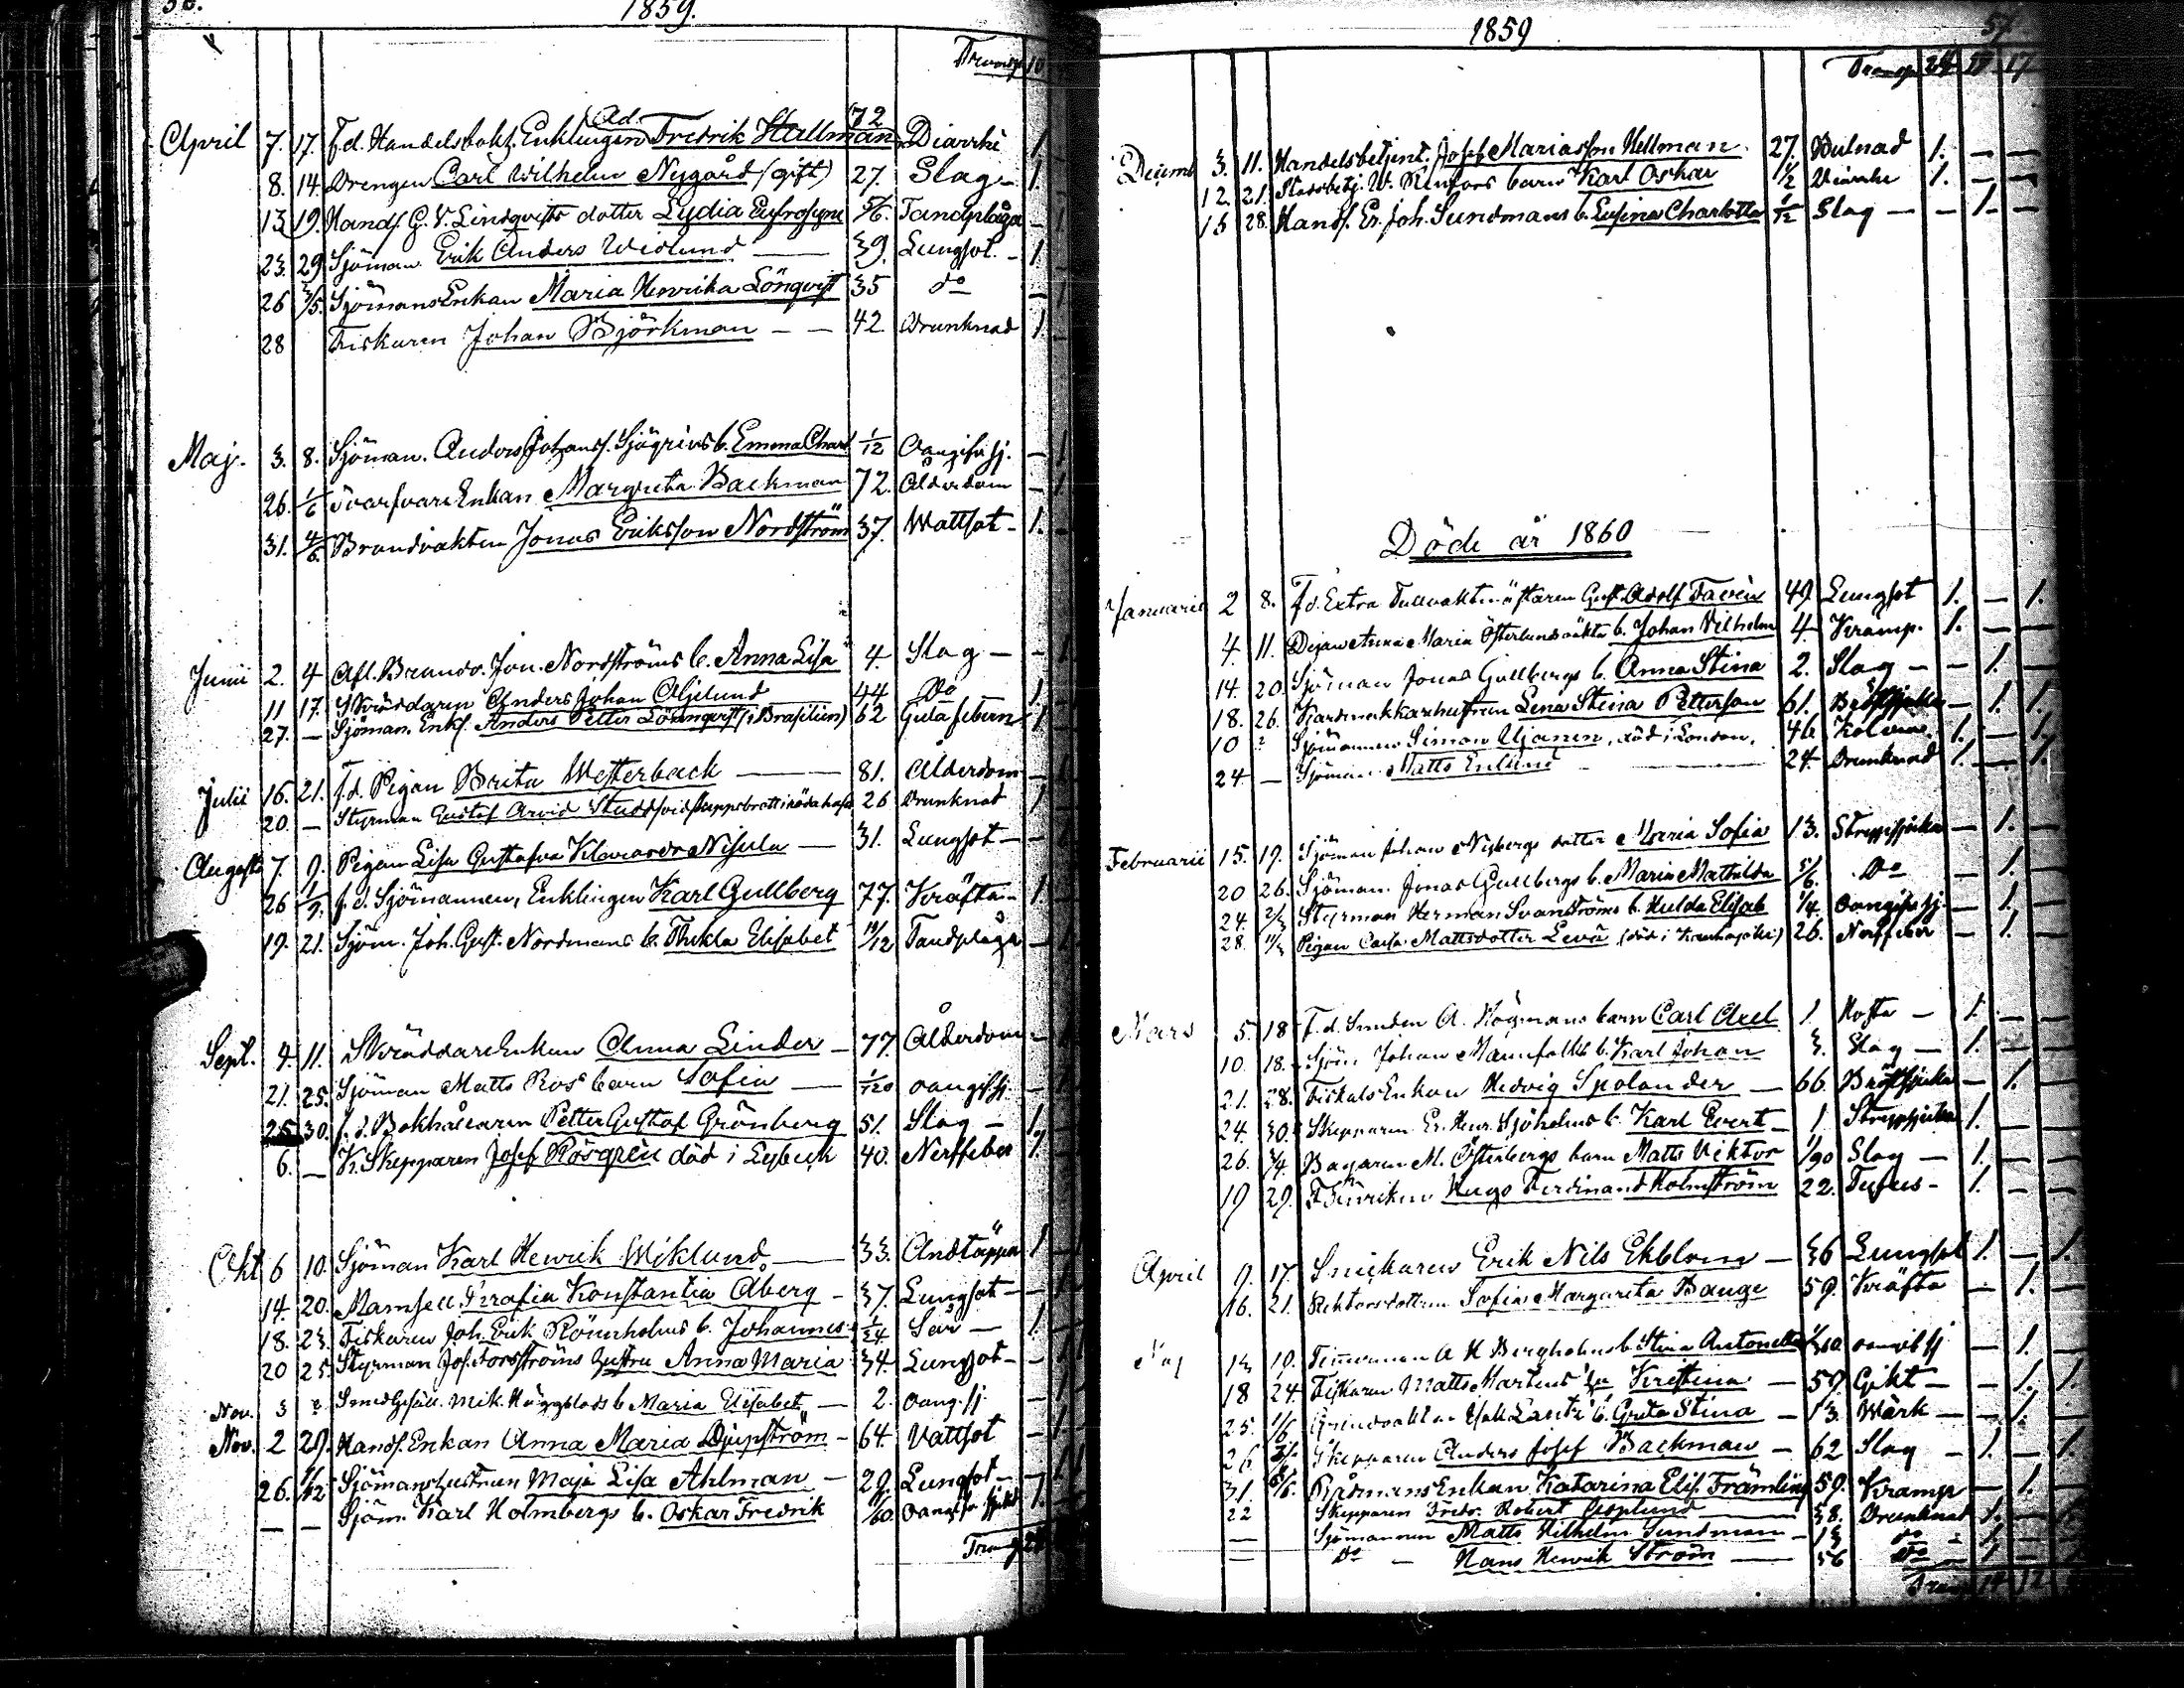 1859.
Transp 10
April 7. 17. f.d. Handelsbokh. Enklingen Ad. Fredrik Hallman 72 Diarrhé 1
8. 14. Drengen Carl Wilhelm Nygård (gift) 27. Slag - 1.
13 19. Handl. G. V. Lindqvists dotter Lydia Eufrosyne 5/6. Tandplåga - 1
23. 29. Sjöman Erik Anders Widlund — 39. Lungsot. - 1.
26 3/5. SjömansEnkan Maria Henrika Lönqvist 35 do - 1
28 Fiskaren Johan Björkman - - 42. Drunknad 1.
Maj. 3. 8. Sjöman. Anders Johanss. Sjögrens b. Emma Charl 1/12 Oangifv sj. - 1
26. 1/6 SvarfvareEnkan Margreta Backman 72. Ålderdom - 1
31. 4/6. Brandvakten Jonas Eriksson Nordström 37. Wattsot - 1. -
Junii 2. 4 Afl. Brandv. Jon. Nordströms b. Anna Lisa 4. Slag - - 1
11 17. Skräddaren Anders Johan Aljelund 44 Do 1.
27. — Sjöman. Enkl. Anders Petter Lönnqvist (i Brasilien) 62 Gula febern 1
Julii 16. 21. f.d. Pigan Brita Westerback — 81. Ålderdom - 1
20. — Styrman Gustaf Arvid Studd vid skeppsbrott i röda hafvet 26 Drunknad 1
Augusti 7. 9. Pigan Lisa Gustafva Nisula — 31. Lungsot - - 1
26 1/9. f.d. Sjömannen, Enklingen Karl Gullberg 77. Kräfta - 1.
19. 21. Sjöm. Joh. Gust. Nordmans b. Thekla Elisabet 11/12 Tandplåga - 1
Sept. 4. 11. SkräddareEnkan Anna Linder - 77. Ålderdom - 1
21. 25. Sjöman Matts Ros' barn Sofia — 1/120 oangif sj. - 1
25 30. f.d. Bokhållaren Petter Gustaf Grönberg 51. Slag - 1.
6. — K. Skepparen Josef Rosgrén död i Lybeck 40. Nerffeber 1.
Okt 6 10. Sjöman Karl Henrik Wiklund. — 33. Andtäppa 1
14. 20. Mamsell Serafia Konstantia Åberg - 37. Lungsot - 1
18. 23. Fiskaren Joh. Erik Rönnholms b. Johannes 1/24 Sår - 1.
20 25. Styrman Jos. Forsströms hustru Anna Maria 34. Lungsot - - 1
Nov. 3 ? SmedGesäll. Mik. Häggblads b Maria Elisabet — 2. oang. sj. - 1
Nov. 2 29. Handl. Enkan Anna Maria Djupström - 64. Vattsot - 1
26. 1/12 Sjömanshustrun Maja Lisa Ahlman - 29. Lungsot - 1
— — Sjöm. Karl Holmbergs b. Oskar Fredrik 1/60. Oangifv sjukd 1.
Transp 24
1859 57
Transp 24 17 17
Decemb 3. 11. Handelsbetjent. Josef Mariasson Hellman. 27. Bulnad 1. — —
12. 21. Stadsbetj. W. Renfors barn Karl Oskar 1/2 Diarrhe 1. — —
15 28. Handl. Er. Joh. Sundmans b. Eufina Charlotta 1/12 Slag - - 1. -
Döde år 1860
Januarii 2 8. f.d. Extra Tullvaktmästaren Gust. Adolf Favén 49 Lungsot 1. — 1.
4. 11. Dejan Anna Maria Österlunds oäkta b. Johan Vilhelm 4 Kramp. 1. — —
14. 20. Sjöman Jonas Gullbergs b. Anna Stina 2. Slag - - 1. —
18. 26. hustrun Lena Stina Petterson 61. Bröstsjuka - 1. 1.
10 ? Sjömannen Simon Ujanen, död i London. 46 Kolera. 1. — 1.
24 — Sjöman Matts Enlund — 24. Drunknad 1. — 1.
Februarii 15. 19. Sjöman Johan Nybergs dotter Maria Sofia 13. Strypsjuka - 1. —
20 26. Sjöman. Jonas Gullbergs b. Maria Mathilda 5/6. Do — 1. —
24. 2/3 Styrman Herman Svanströms b. Hulda Elisab 1/4. Oangifv sj. - 1. —
28. 11/3 Pigan Caisa Mattsdotter Levä (död i Kauhajoki) 26. Nerffeber - 1. —
Mars 5. 18 F.d. A. Högmans barn Carl Axel 1. Hosta - 1. — —
10. 18. Sjöm. Johan Mannfolks b. Karl Johan 3. Slag - 1. — —
21. 28. FiskalsEnkan Hedvig Spolander — 66. Bröstsjuka - 1. —
24. 30. Skepparen Er. Henr. Sjöholms b. Karl Evert - 1 Strypsjuka 1. — —
26. 3/4 Bagaren M. Österbergs barn Matts Viktor 1/90 Slag - 1. — —
19 29. Fänriken Hugo Ferdinand Holmström 22. Tyfus - 1. — —
April 9. 17. Snickaren Erik Nils Ekblom - 36 Lungsot 1. — 1.
16. 21. Rektorsdottern Sofia Margareta Bange 59. Kräfta - 1. —
Maj 13 19. Timmerman A H Bergholms b. Stina Antonetta oangif sj - 1. —
18 24. Fiskaren Matts Martens h:u Kristina — 59. Gikt - - 1. 1.
25. 1/6 b. Greta Stina - 13. Wärk - - 1. —
26 Skepparen Anders Josef Backman - 62 Slag - 1. — 1.
31. Enkan Katarina Elis. Främling 59. Kramp - 1. —
22 Skepparen Fredr. Robert Asplund — 38. Drunknad 1. — 1.
— Sjömannen Matts Vilhelm Sundman - 13 do - 1 —
— Do - Hans Henrik Ström — 56 Do - 1 —
Transp 19 12